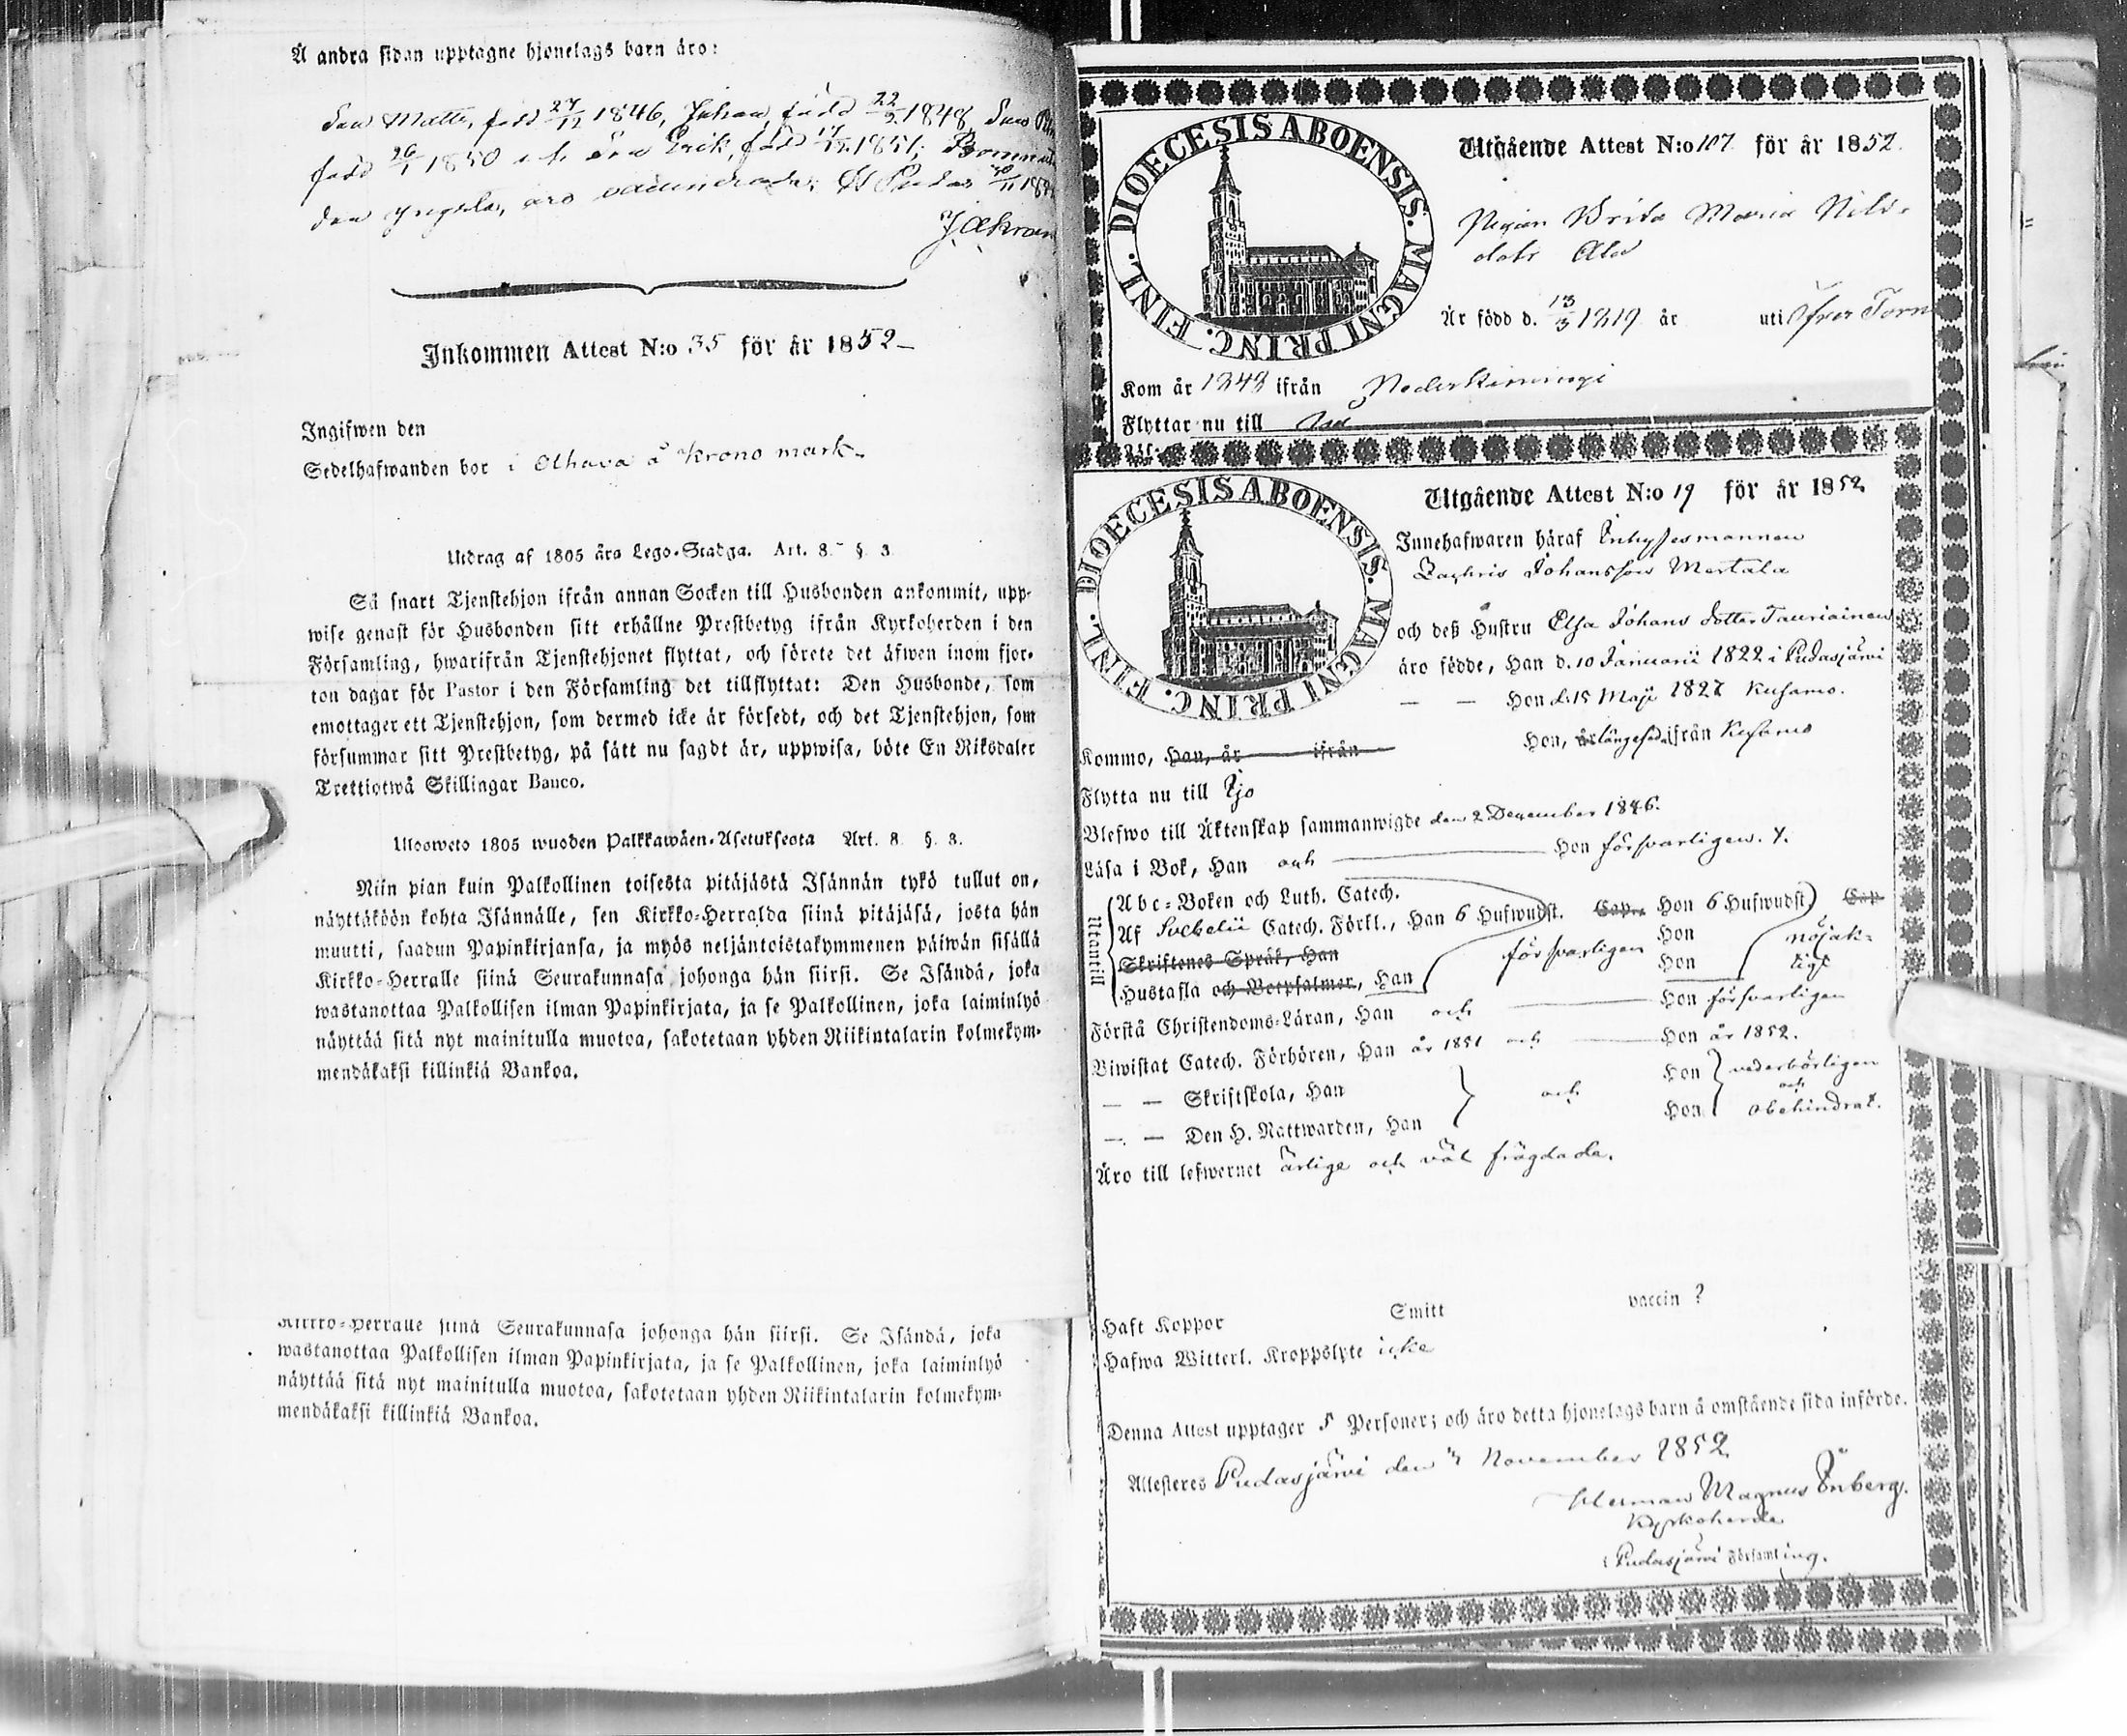 Å andra sidan upptagne hjonelags barn äro:
Son Matts, född 27/12 1846, Johan, född 22/2 1848, Son
född 26/1 1850 och Son Erik, född 17/12 1851;
den yngsta, äro vaccinerade;
Inkommen Attest N:o 35 för år 1852
Ingifwen den
Sedelhafwanden bor i Olhava å Krono mark.
Utdrag af 1805 års Lego-Stadga. Art. 8. §. 3
Så snart Tjenstehjon ifrån annan Socken till Husbonden ankommit, upp-
wise genast för Husbonden sitt erhållne Prestbetyg ifrån Kyrkoherden i den
Församling, hwarifrån Tjenstehjonet flyttat, och förete det äfwen inom fjor-
ton dagar för Pastor i den Församling det tillflyttat: Den Husbonde, som
emottager ett Tjenstehjon, som dermed icke är försedt, och det Tjenstehjon, som
försummar sitt Prestbetyg, på sätt nu sagdt är, uppwisa, böte En Riksdaler
Trettiotwå Skillingar Banco.
Ulosweto 1805 wuoden Palkkawäen-Asetuksesta Art. 8. §. 3.
Niin pian kuin Palkollinen toisesta pitäjästä Isännän tykö tullut on,
näyttäköön kohta Isännälle, sen Kirkko-Herralda siinä pitäjäsä, josta hän
muutti, saadun Papinkirjansa, ja myös neljäntoistakymmenen päiwän sisällä
Kirkko-Herralle siinä Seurakunnasa johonga hän siirsi. Se Isändä, joka
wastanottaa Palkollisen ilman Papinkirjata, ja se Palkollinen, joka laiminlyö
näyttää sitä nyt mainitulla muotoa, sakotetaan yhden Riikintalarin kolmekym-
mendäkaksi killinkiä Bankoa.
Kirkko-Herralle siinä Seurakunnasa johonga hän siirsi. Se Isändä, joka
wastanottaa Palkollisen ilman Papinkirjata, ja se Palkollinen, joka laiminlyö
näyttää sitä nyt mainitulla muotoa, sakotetaan yhden Riikintalarin kolmekym-
mendäkaksi killinkiä Bankoa.
DIOECESIS ABOENSIS. MAGNI PRINC. FINL.
Utgående Attest N:o 107 för år 1852.
Pigan Brita Maria Nils-
dotr Ala
Är född d. 13/3 1819 år uti Öfver Torn
Kom år 1848 ifrån Nederkiiminge
Flyttar nu till
DIOECESIS ABOENSIS. MAGNI PRINC. FINL.
Utgående Attest N:o 19 för år 1852
Innehafwaren häraf Inhysesmannen
Zachris Johansson Mertala
och deß Hustru Elsa Johans dotter Tauriainen
äro födde, Han d. 10 Januarii 1822 i Pudasjärvi
— — Hon d. 15 Maji 1827 Kusamo.
Kommo, Han, år ifrån Hon, år längesedan ifrån Kusamo
Flytta nu till Ijo
Blefwo till Äktenskap sammanwigde den 2 December 1846.
Läsa i Bok, Han och Hon försvarligen.
Utantill
Abc-Boken och Luth. Catech.
Af Svebelii Catech. Förkl., Han 6 Hufwudst. Cap., Hon 6 Hufwudst. Cap.
Skriftenes Språk, Han försvarligen Hon nöjak-
Hustafla och Botpsalmer, Han Hon ligt
Förstå Christendoms-Läran, Han och Hon försvarligen
Biwistat Catech. Förhören, Han år 1851 och Hon år 1852.
— — Skriftskola, Han och Hon vederbörligen
och
— — Den H. Nattwarden, Han Hon obehindrat.
Äro till lefwernet ärlige och väl frägdade.
Haft Koppor Smitt vaccin ?
Hafwa Witterl. Kroppslyte icke
Denna Attest upptager 5 Personer; och äro detta hjonelags barn å omstående sida införde.
Attesteres Pudasjärvi den November 1852
Herman Magnus Önberg.
Kyrkoherde
i Pudasjärvi Församling.